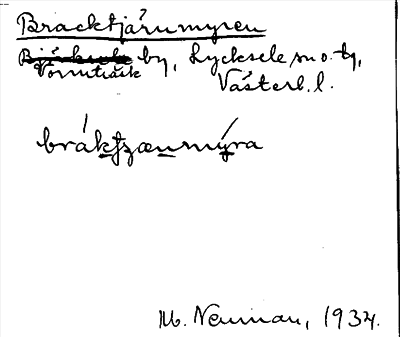 Bracktjärnmyren
Vormträsk by, Lycksele sn o. tg,
Västerb. l.
bráktʒænmýra
M. Neuman, 1934.